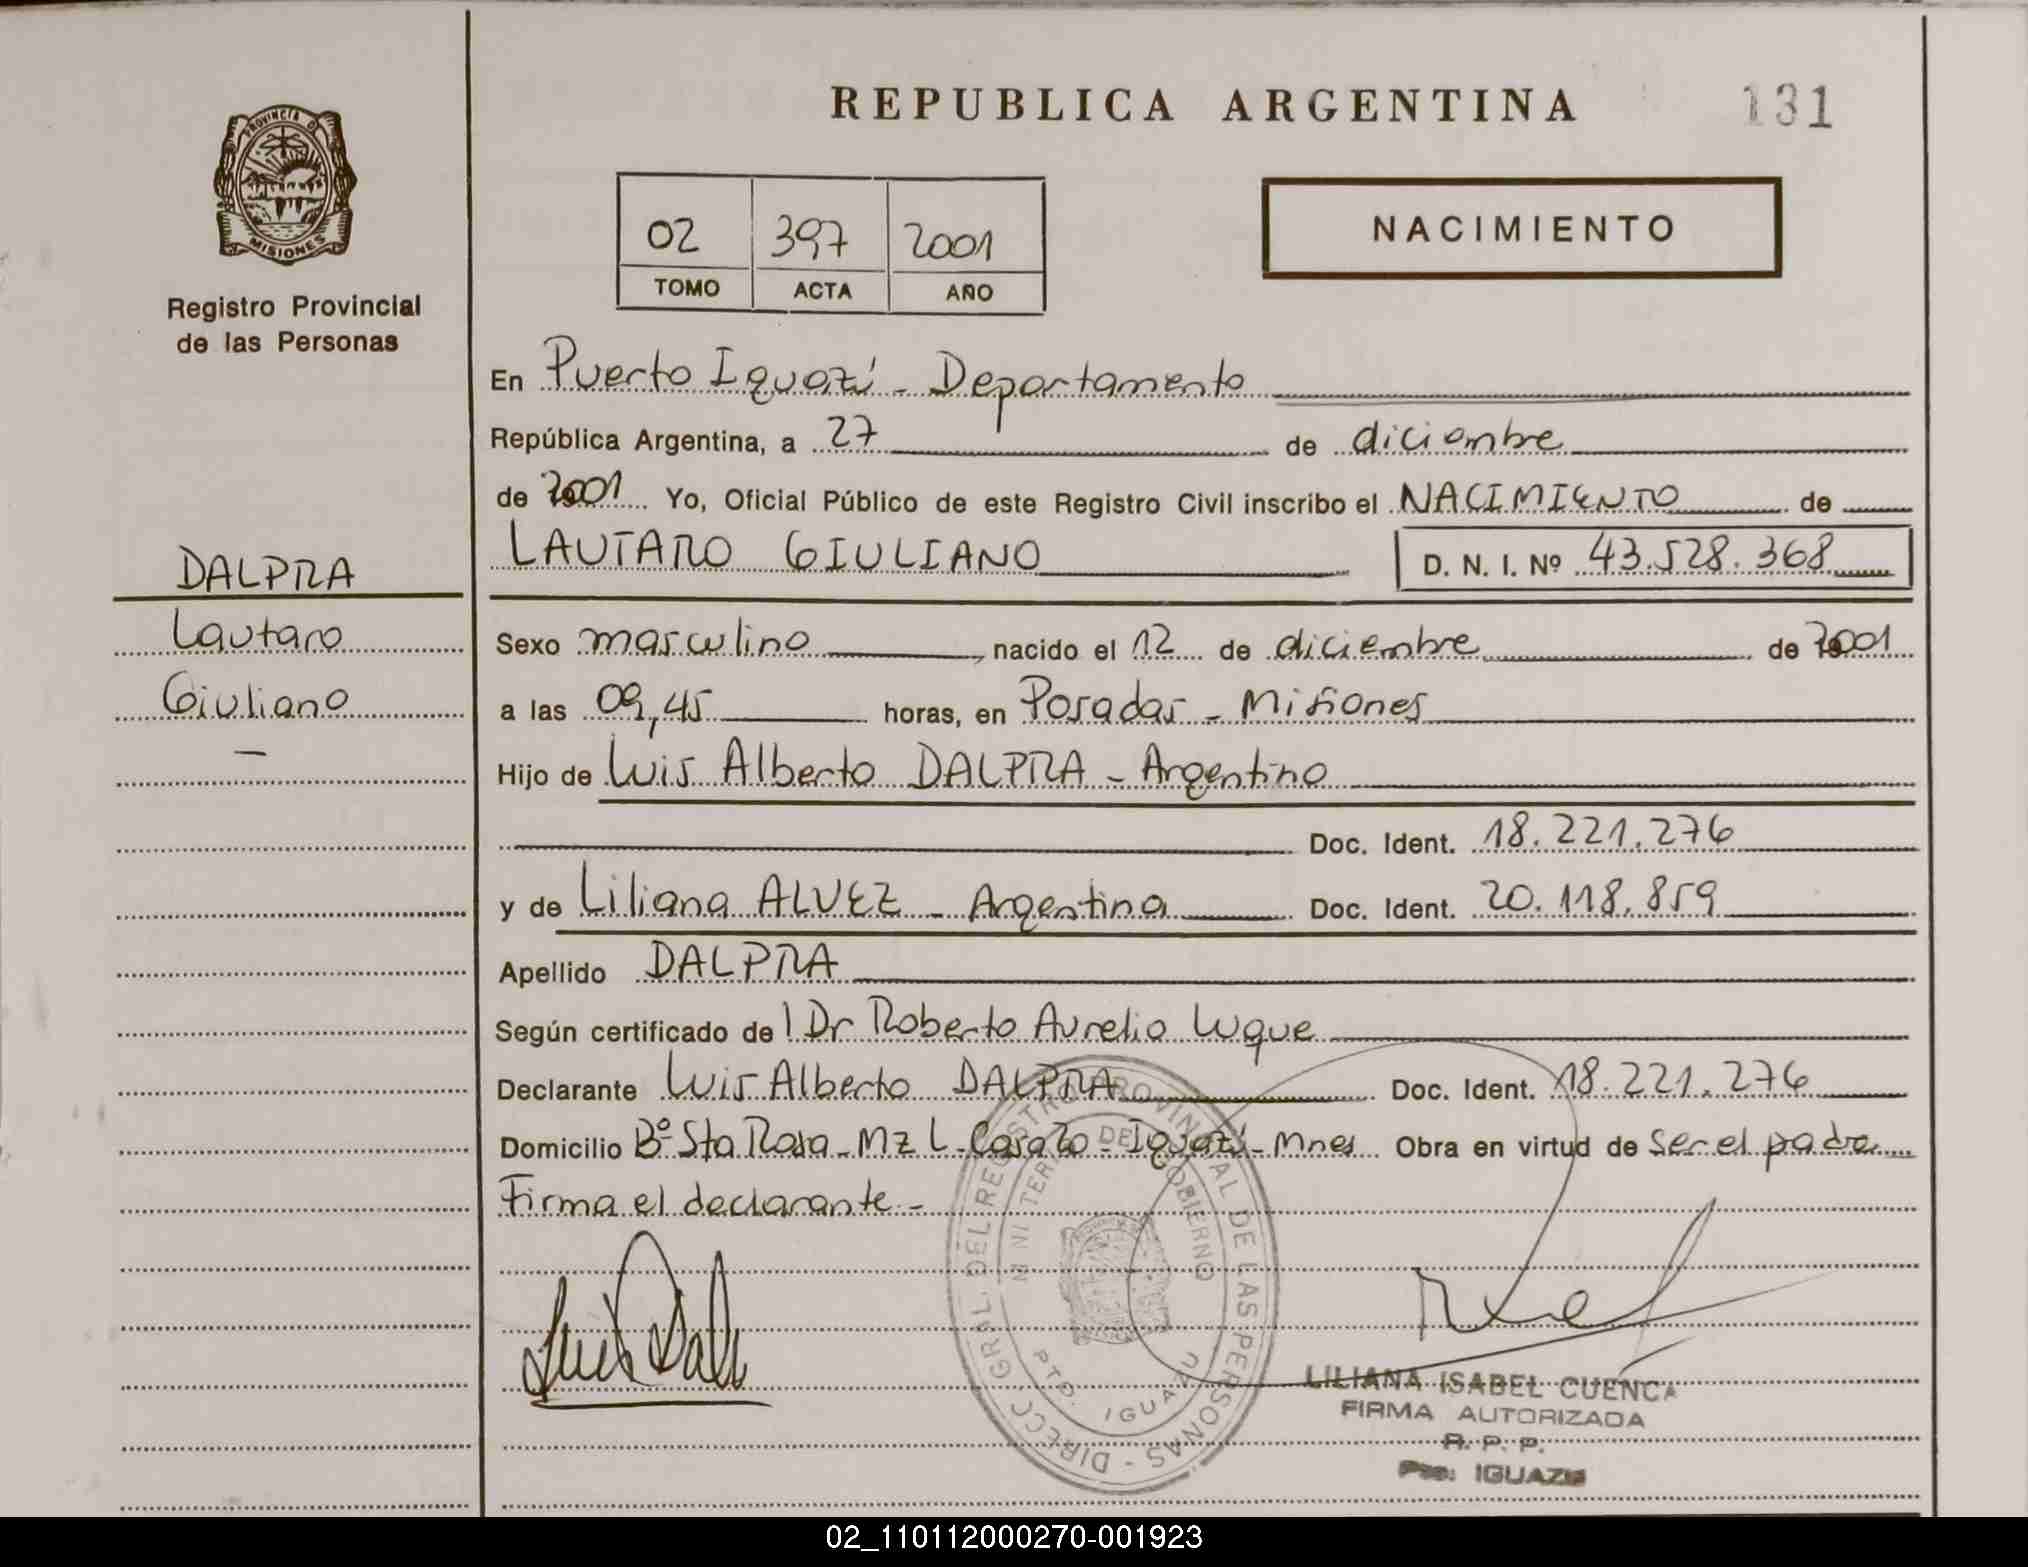 REPUBLICA ARGENTINA 131
PROVINCIA D MISIONES
Registro Provincial
de las Personas
02 397 2001
TOMO ACTA AÑO
NACIMIENTO
En Puerto Iguazú - Departamento
República Argentina, a 27 de diciembre
de 2001 Yo, Oficial Público de este Registro Civil inscribo el NACIMIENTO de
LAUTARO GIULIANO D. N. I. Nº 43.528.368
DALPRA
Lautaro
Giuliano
-
Sexo masculino, nacido el 12 de diciembre de 2001
a las 09,45 horas, en Posadas - Misiones
Hijo de Luis Alberto DALPRA - Argentino
Doc. Ident. 18.221.276
y de Liliana ALVEZ - Argentina Doc. Ident. 20.118.859
Apellido DALPRA
Según certificado de l Dr Roberto Aurelio Luque
Declarante Luis Alberto DALPRA Doc. Ident. 18.221.276
Domicilio Bº Sta Rosa - Mz L - Casa - Iguazú - Mnes Obra en virtud de Ser el padre
Firma el declarante -
DIRECC. GRAL. DEL REGISTRO PROVINCIAL DE LAS PERSONAS -
MINITERI DE GOBIERNO
PTO. IGUAZU
LILIANA ISABEL CUENCA
FIRMA AUTORIZADA
R. P. P.
IGUAZU
02_110112000270-001923